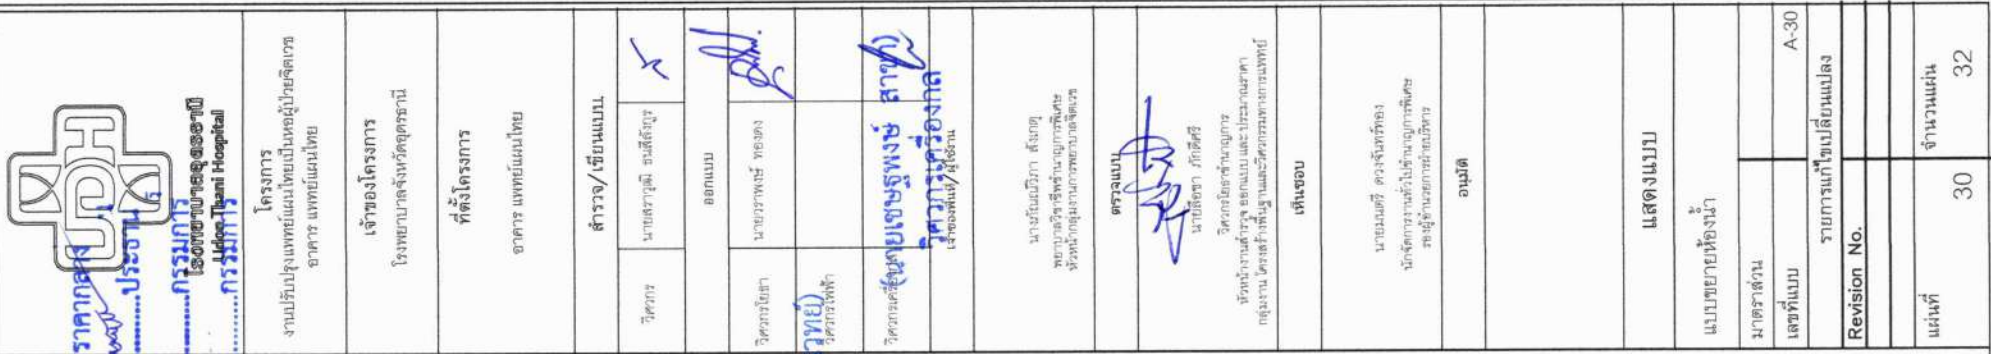 โรงพยาบาลอุดรธานี
Udon Thani Hospital
ราคากลาง
ประธาน
กรรมการ
กรรมการ
โครงการ
งานปรับปรุงแพทย์แผนไทยเป็นหอผู้ป่วยจิตเวช
อาคาร แพทย์แผนไทย
เจ้าของโครงการ
โรงพยาบาลจังหวัดอุดรธานี
ที่ตั้งโครงการ
อาคาร แพทย์แผนไทย
สำรวจ/เขียนแบบ
วิศวกร
นายสราวุฒิ ธนสีลังกูร
ออกแบบ
วิศวกรโยธา
นายวราพงษ์ ทองคง
วิศวกรไฟฟ้า
วิศวกรเครื่องกล
(นายเชษฐพงษ์ สาขา)
วิศวกรเครื่องกล
เจ้าของพื้นที่/ผู้ใช้งาน
พยาบาลวิชาชีพชำนาญการพิเศษ
หัวหน้ากลุ่มงานการพยาบาลจิตเวช
ตรวจแบบ
นายลือชา ภักดีศรี
วิศวกรโยธาชำนาญการ
หัวหน้างานสำรวจ ออกแบบและประมาณราคา
กลุ่มงานโครงสร้างพื้นฐานและวิศวกรรมทางการแพทย์
เห็นชอบ
นายมนตรี ดวงจันทร์ทอง
นักจัดการงานทั่วไปชำนาญการพิเศษ
รองผู้อำนวยการฝ่ายบริหาร
อนุมัติ
แสดงแบบ
แบบขยายห้องน้ำ
มาตราส่วน
เลขที่แบบ
A-30
รายการแก้ไขเปลี่ยนแปลง
Revision No.
แผ่นที่
จำนวนแผ่น
30
32